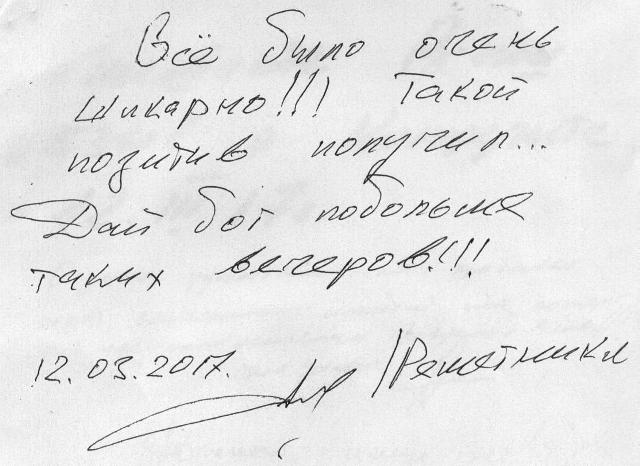 Всё было очень
шикарно!!! Такой
позитив получил...
Дай бог побольше
таких вечеров!!!
12.03.2017. /Решетникл